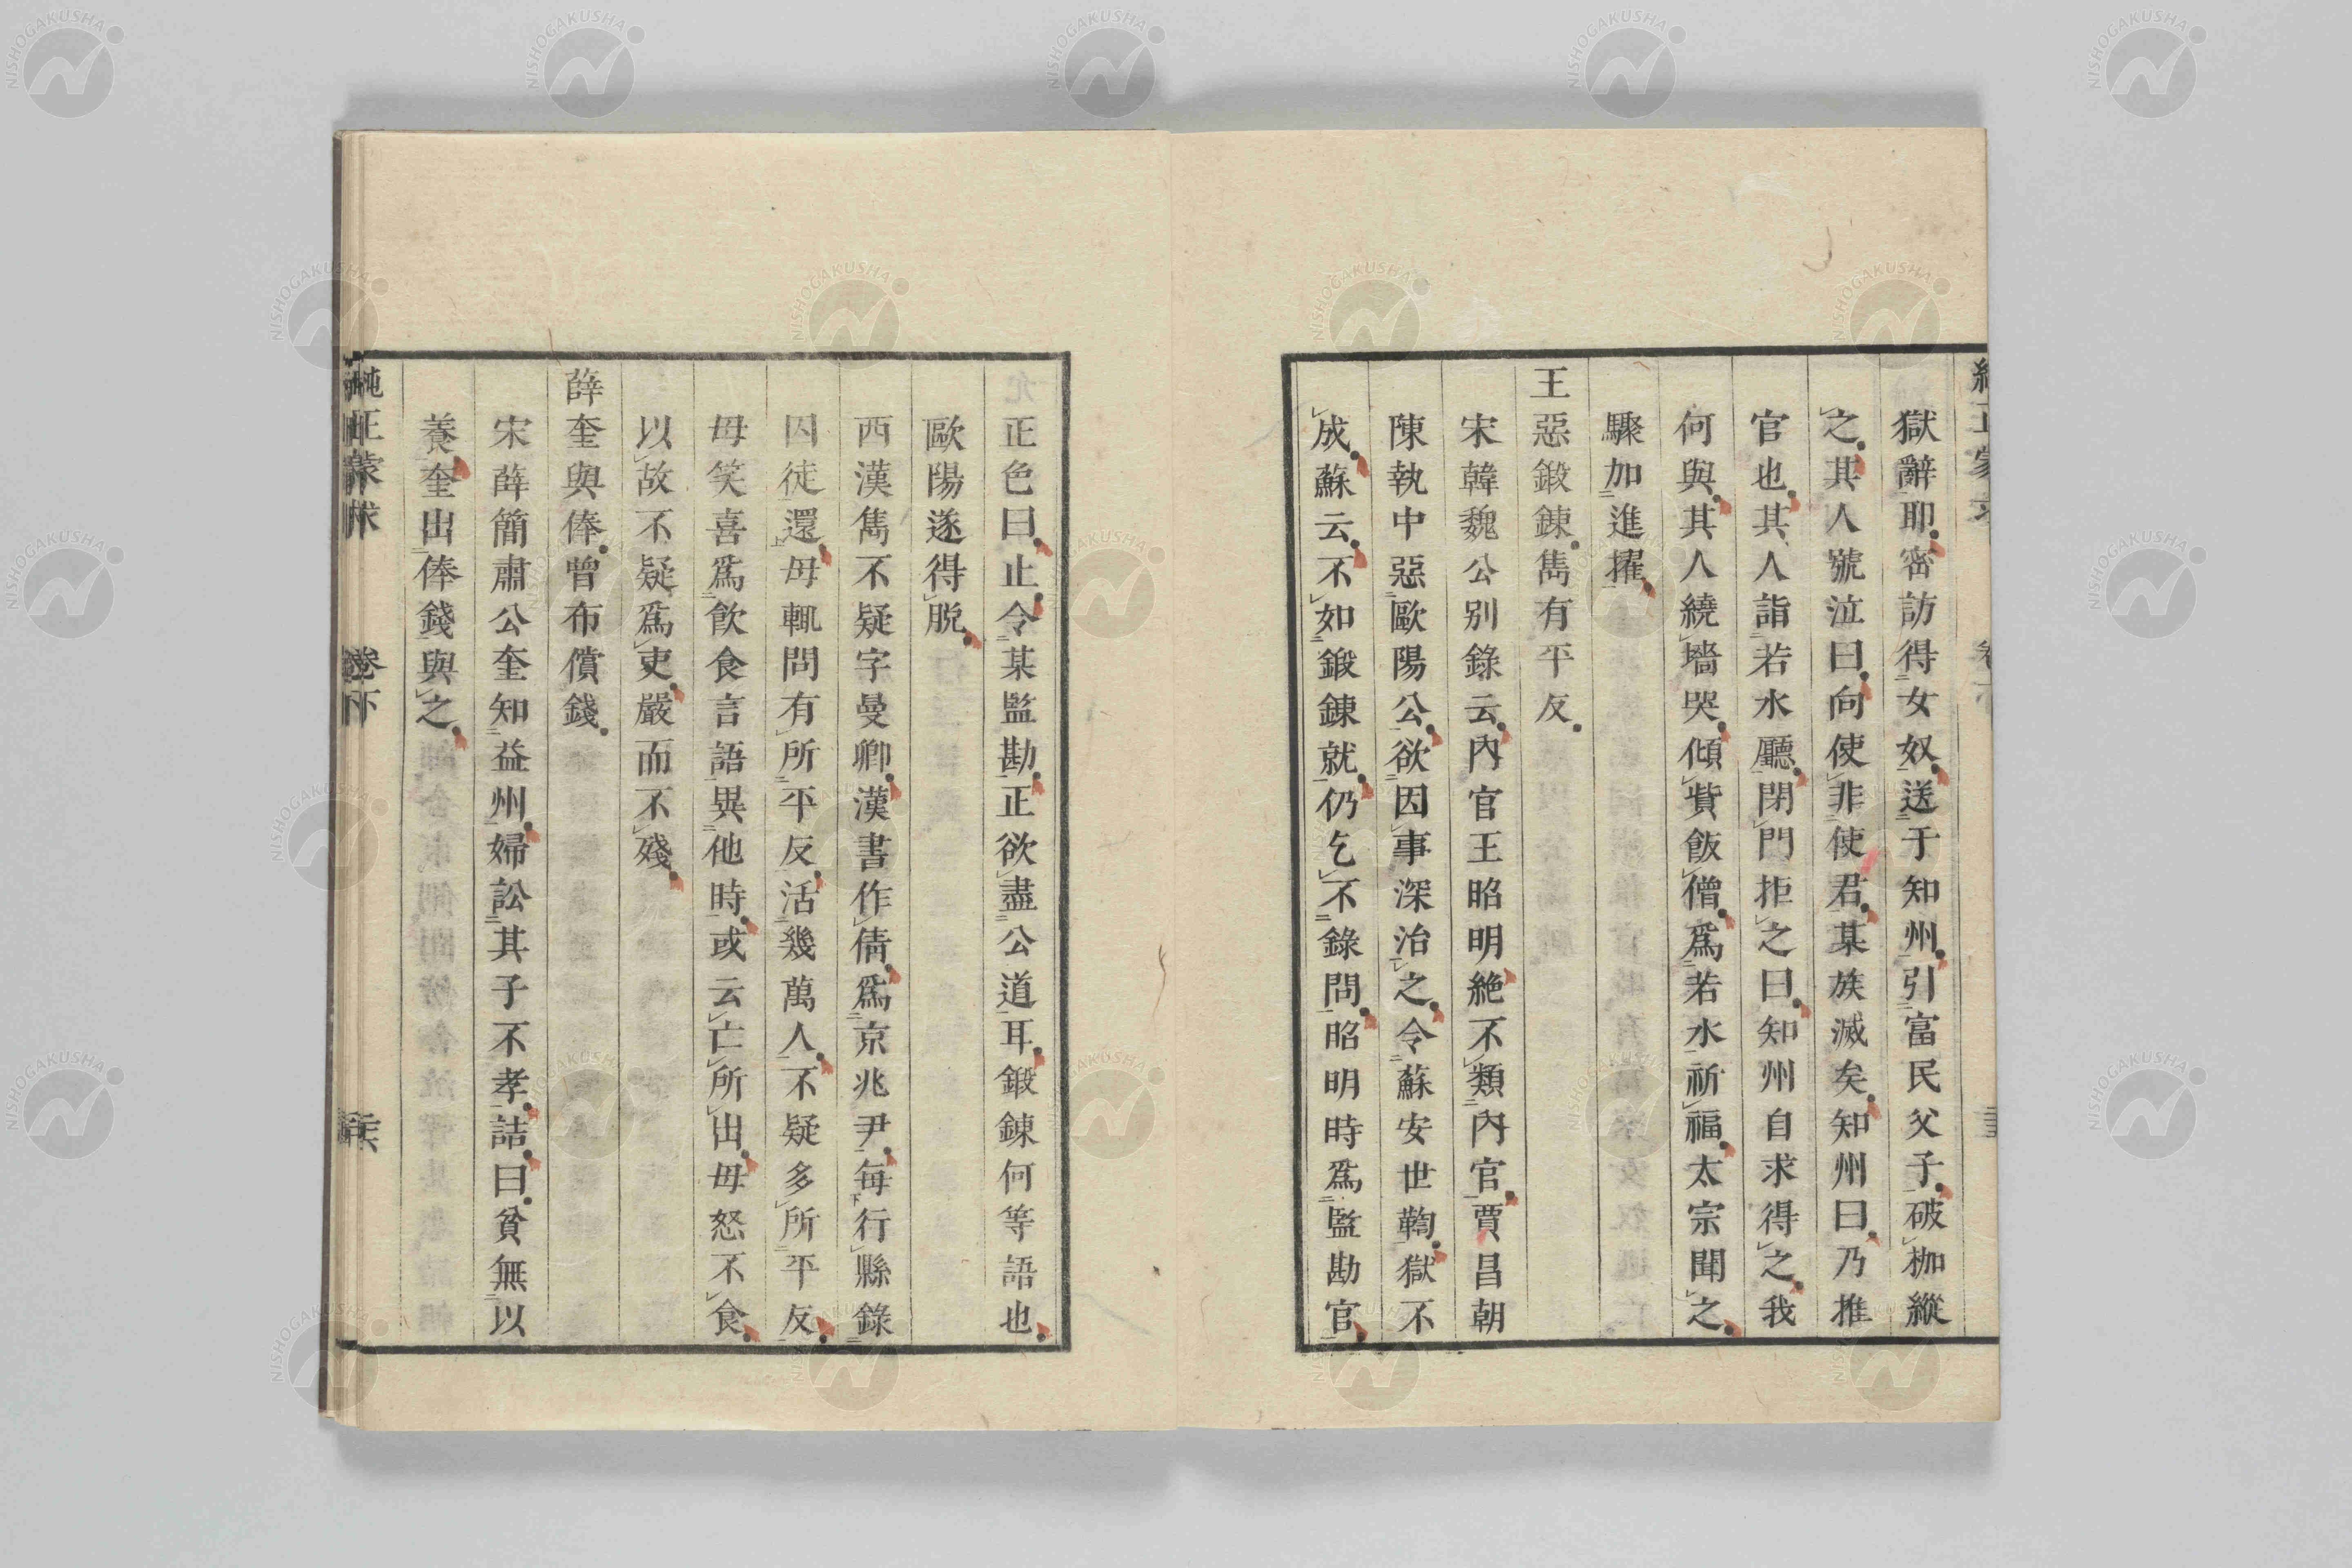 獄辭耶密訪得女奴送于知州引富民父子破枷縱
之其人號泣曰向使非使君某族滅矣知州曰乃推
官也其人詣若水廳閉門拒之曰知州自求得之我
何與其人繞墻哭傾貲飯僧爲若水祈福太宗聞之
驟加進擢
王惡鍛鍊雋有平反
宋韓魏公別錄云內官王昭明絶不類內官賈昌朝
陳執中惡歐陽公欲因事深治之令蘇安世鞫獄不
成蘇云不如鍛鍊就仍乞不錄問昭明時爲監勘官
正色曰止令某監勘正欲盡公道耳鍛鍊何等語也
歐陽遂得脫
西漢雋不疑字曼卿漢書作倩爲京兆尹每行縣錄
囚徒還母輒問有所平反活幾萬人不疑多所平反
母笑喜爲飲食言語異他時或云亡所出母怒不食
以故不疑爲吏嚴而不殘
薛奎與俸曾布償錢
宋薛簡肅公奎知益州婦訟其子不孝詰曰貧無以
養奎出俸錢與之
純正蒙求 卷下 三六
NISHOGAKUSHA